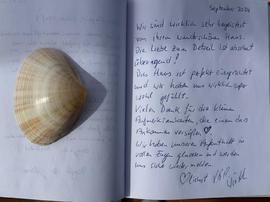 September 2024
Wir sind wirklich sehr begeistert
von Ihrem wunderschönen Haus.
Die Liebe zum Detail ist absolut
überragend!
Das Haus ist perfekt eingerichtet
und wir haben uns wirklich sehr
wohl gefühlt.
Vielen Dank für die kleine
Aufmerksamkeiten, die einem das
Ankommen versüßen ♡.
Wir haben unseren Aufenthalt in
vollen Zügen genossen und werden
uns sicher